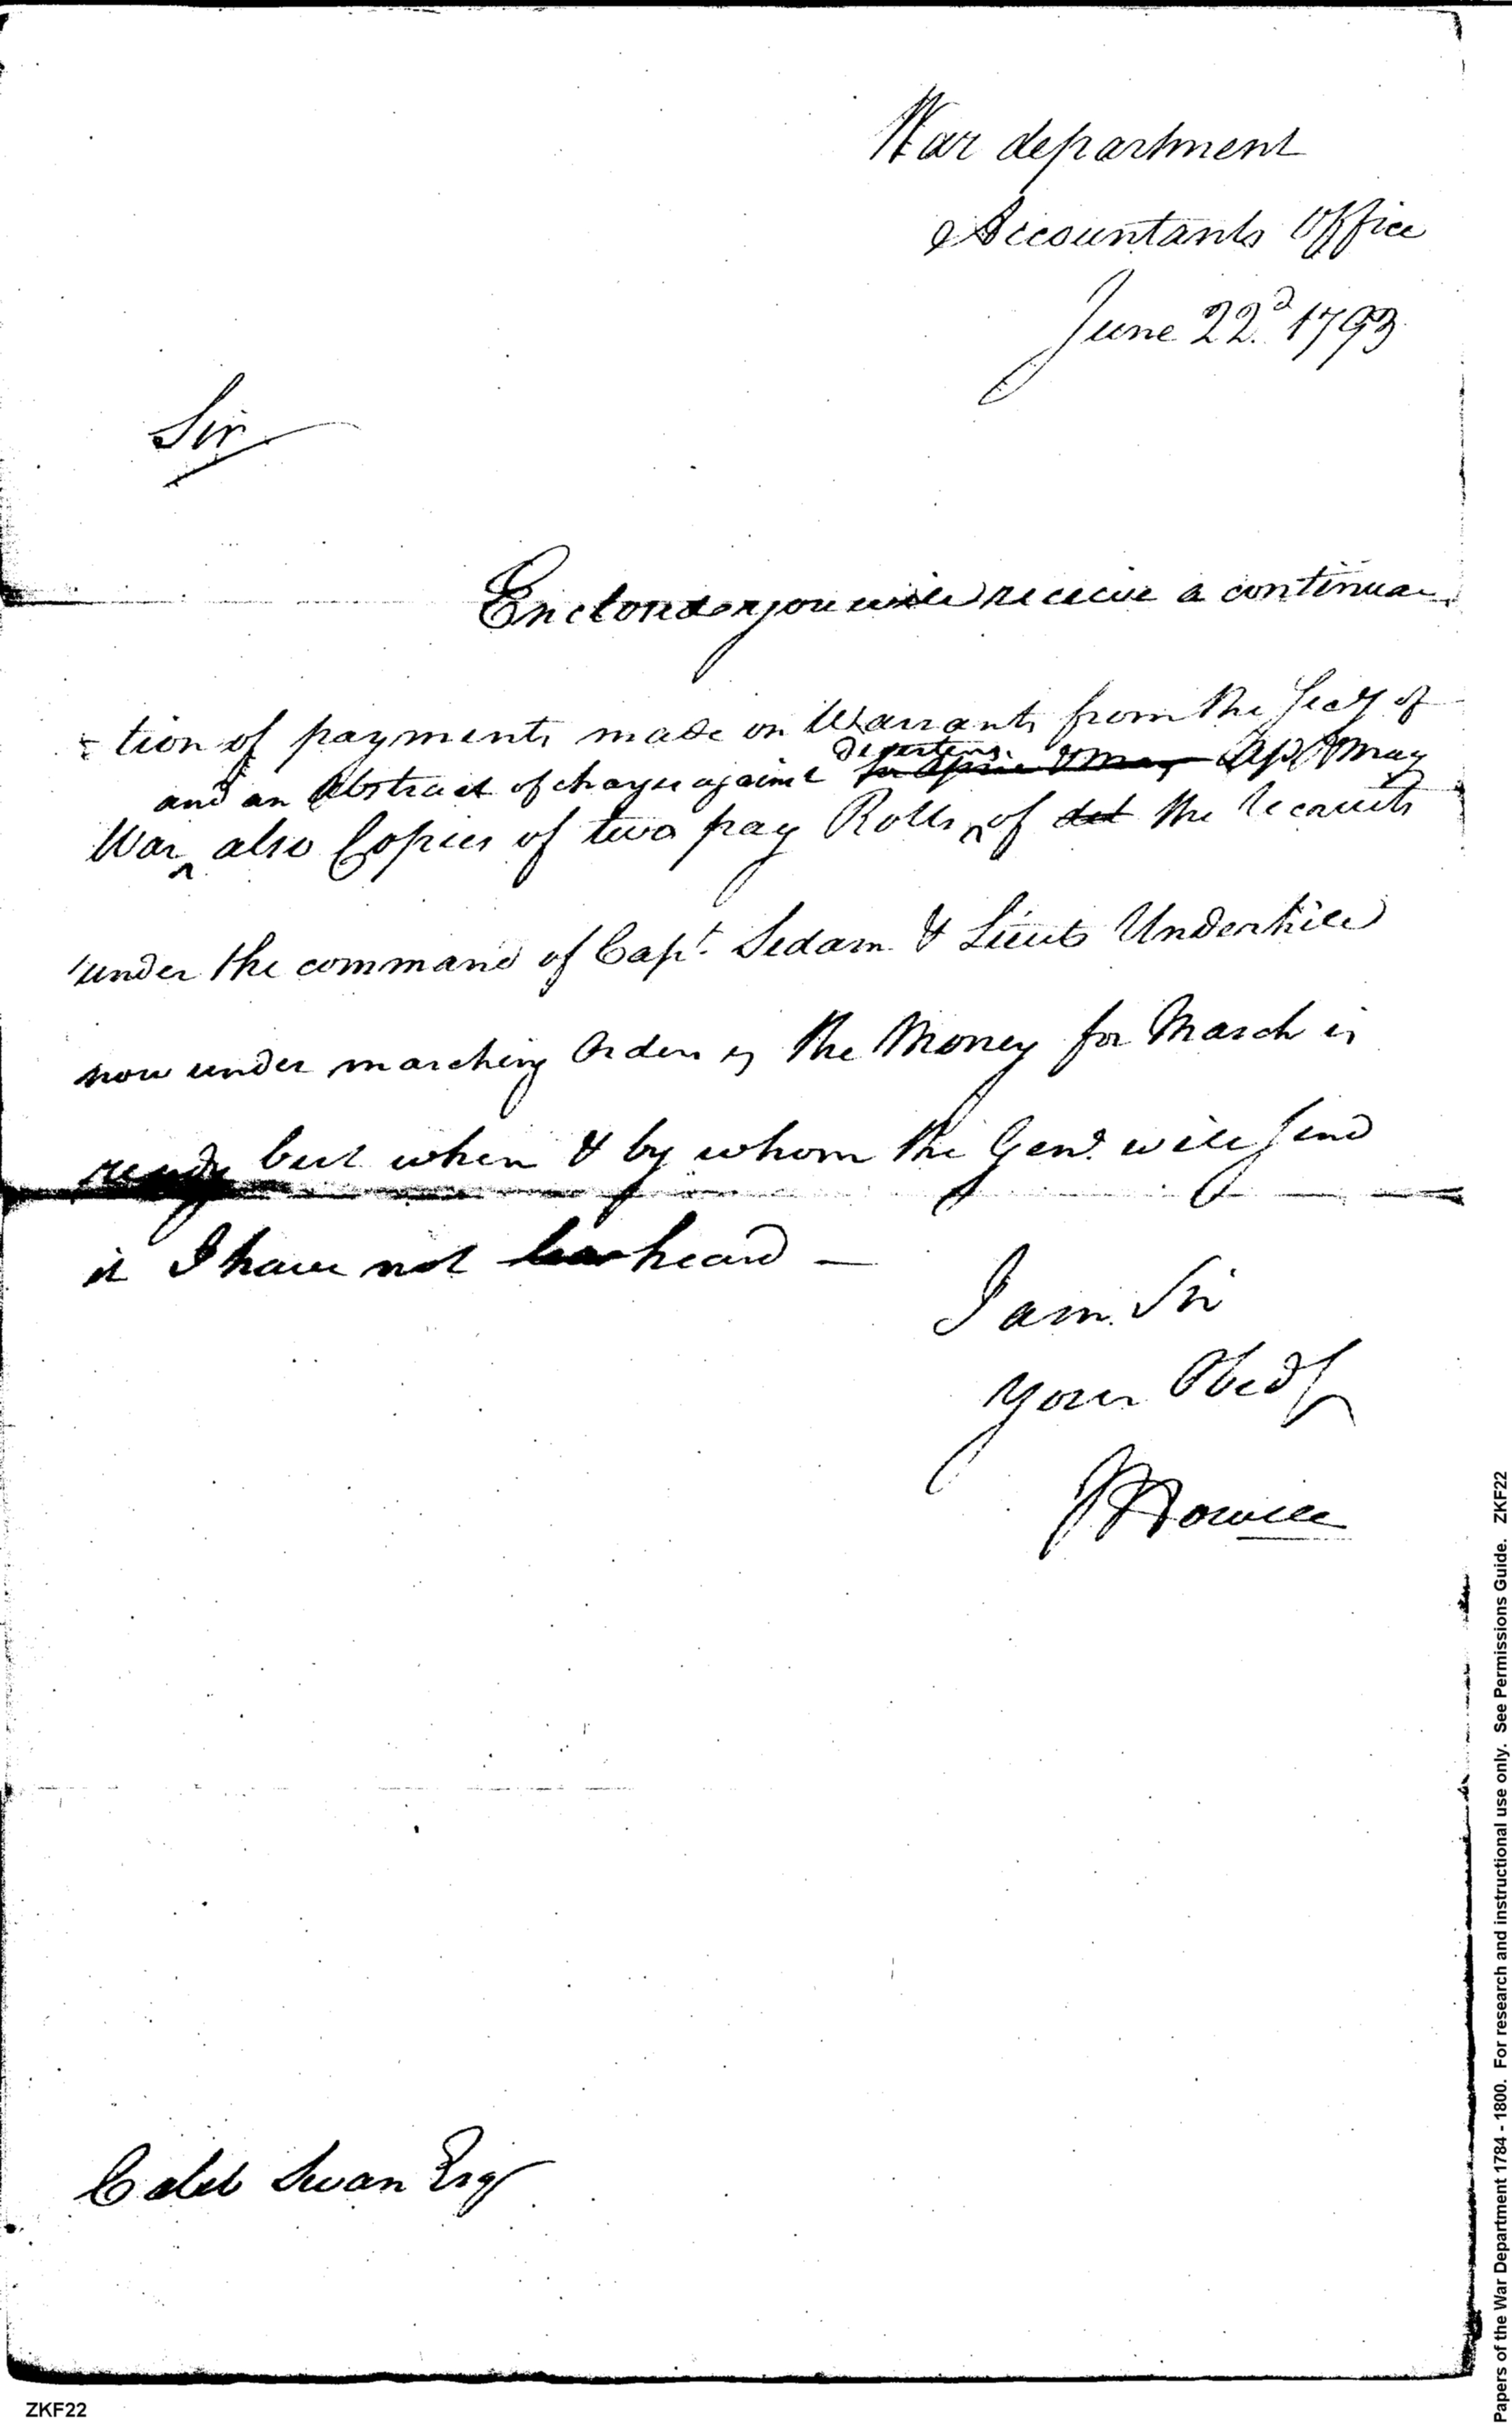 War department
Accountants Office
June 22d. 1793
Sir
Enclosed you will receive a continua
tion of payments made on Warrants from the Secy of
and an Abstract of charges against for April & May Ap & May
War also Copies of two pay Rolls of det the recruits
under the command of Capt. Sedam & Lieuts Underhill
now under marching Orders, The Money for March is
ready but when & by whom the Genl. will send
it I have not heard —
I am Sir
your Obedt
J Howell
Caleb Swan Esqr
ZKF22
Papers of the War Department 1784 - 1800. For research and instructional use only. See Permissions Guide. ZKF22